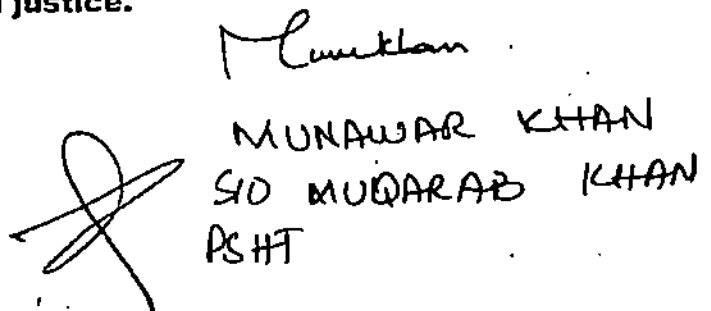 justice.
MUNAWAR KHAN
S/O MUQARAB KHAN
PSHT